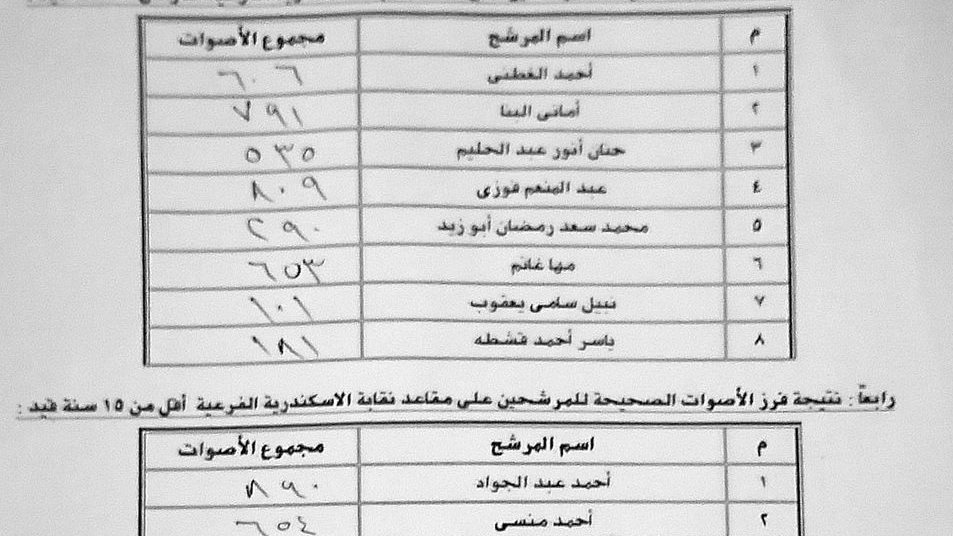 م اسم المرشح مجموع الأصوات
١ أحمد الغطنى ٦٠٦
٢ أمانى البنا ٧٩١
٣ حنان أنور عبد الحليم ٥٣٥
٤ عبد المنعم فوزى ٨٠٩
٥ محمد سعد رمضان أبو زيد ٢٩٠
٦ مها غانم ٦٥٣
٧ نبيل سامى يعقوب ١٠١
٨ ياسر أحمد قشطه ١٨١
رابعاً : نتيجة فرز الأصوات الصحيحة للمرشحين على مقاعد نقابة الاسكندرية الفرعية أقل من ١٥ سنة قيد :
م اسم المرشح مجموع الأصوات
١ أحمد عبد الجواد ٨٩٠
٢ أحمد منسى ٦٥٤